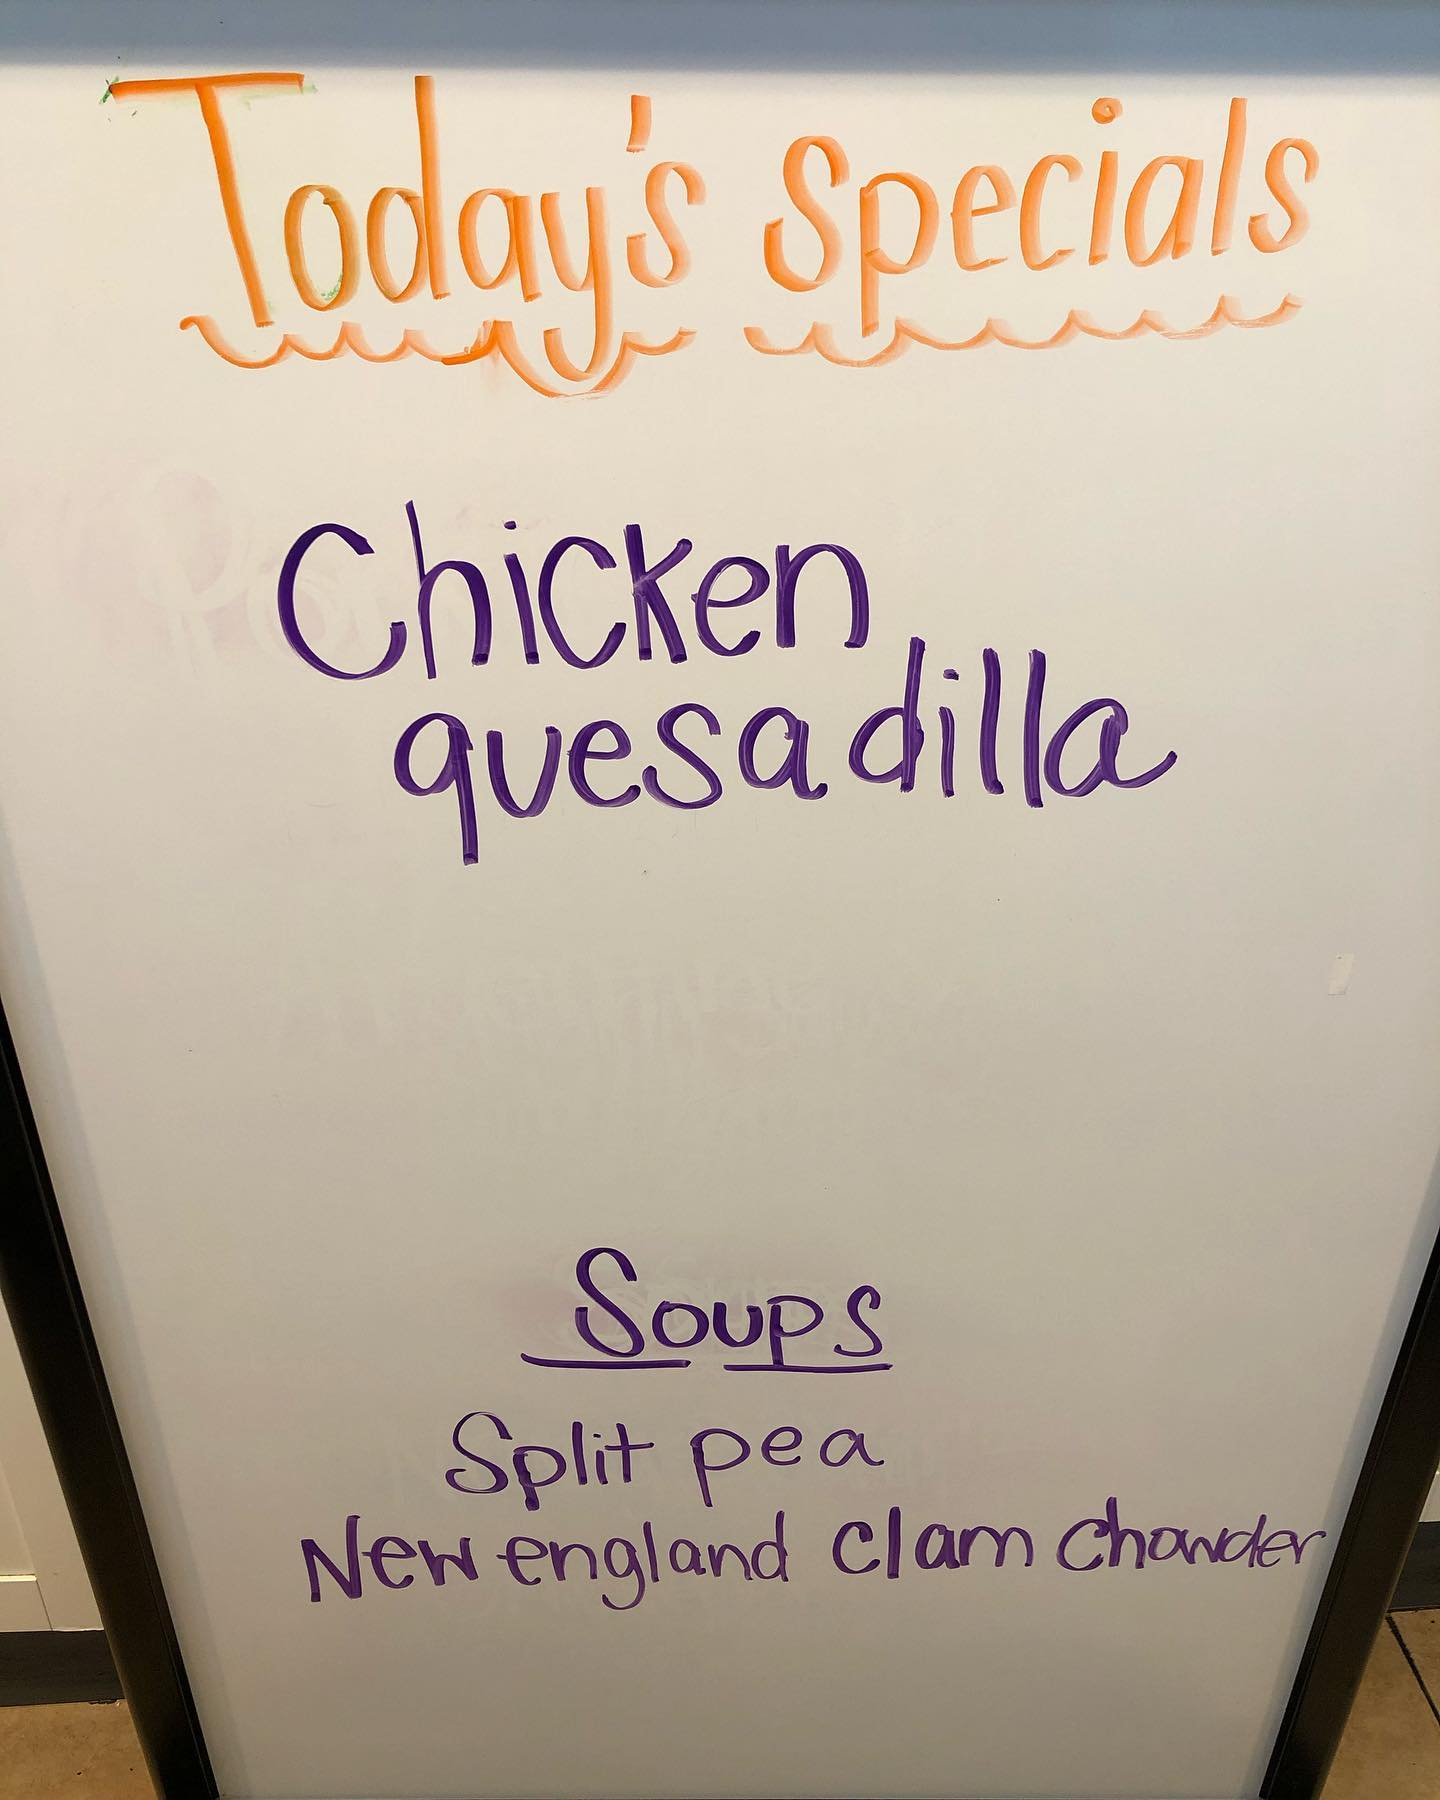 Today's Specials
Chicken
quesadilla
Soups
Split pea
New england clam chowder